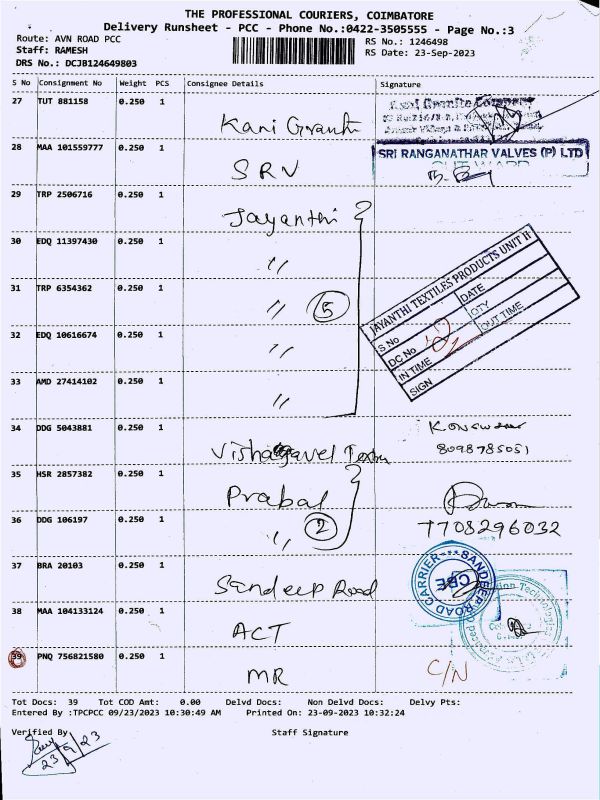 THE PROFESSIONAL COURIERS, COIMBATORE
Delivery Runsheet - PCC - Phone No.:0422-3505555 - Page No.:3
Route: AVN ROAD PCC
RS No.: 1246498
Staff: RAMESH
RS Date: 23-Sep-2023
DRS No.: DCJB124649803
S No Consignment No Weight PCS Consignee Details Signature
27 TUT 881158 0.250 1 Kani Granite Kani Granite Company
28 MAA 101559777 0.250 1 SRV SRI RANGANATHAR VALVES (P) LTD
29 TRP 2506716 0.250 1 Jayanthi
30 EDQ 11397430 0.250 1 "
31 TRP 6354362 0.250 1 " 5
32 EDQ 10616674 0.250 1 "
33 AMD 27414102 0.250 1 "
JAYANTHI TEXTILES PRODUCTS UNIT II
S No DATE
DC No QTY
IN TIME OUT TIME
SIGN
34 DDG 5043881 0.250 1
8098785051
35 HSR 2857382 0.250 1 Prabal
36 DDG 106197 0.250 1 " 2 7708296032
37 BRA 20103 0.250 1 Sandeep Road SANDEEP ROAD CARRIER CBE
38 MAA 104133124 0.250 1 ACT
39 PNQ 756821580 0.250 1 MR C/N
Tot Docs: 39 Tot COD Amt: 0.00 Delvd Docs: Non Delvd Docs: Delvy Pts:
Entered By :TPCPCC 09/23/2023 10:30:49 AM Printed On: 23-09-2023 10:32:24
Verified By Staff Signature
23/9/23